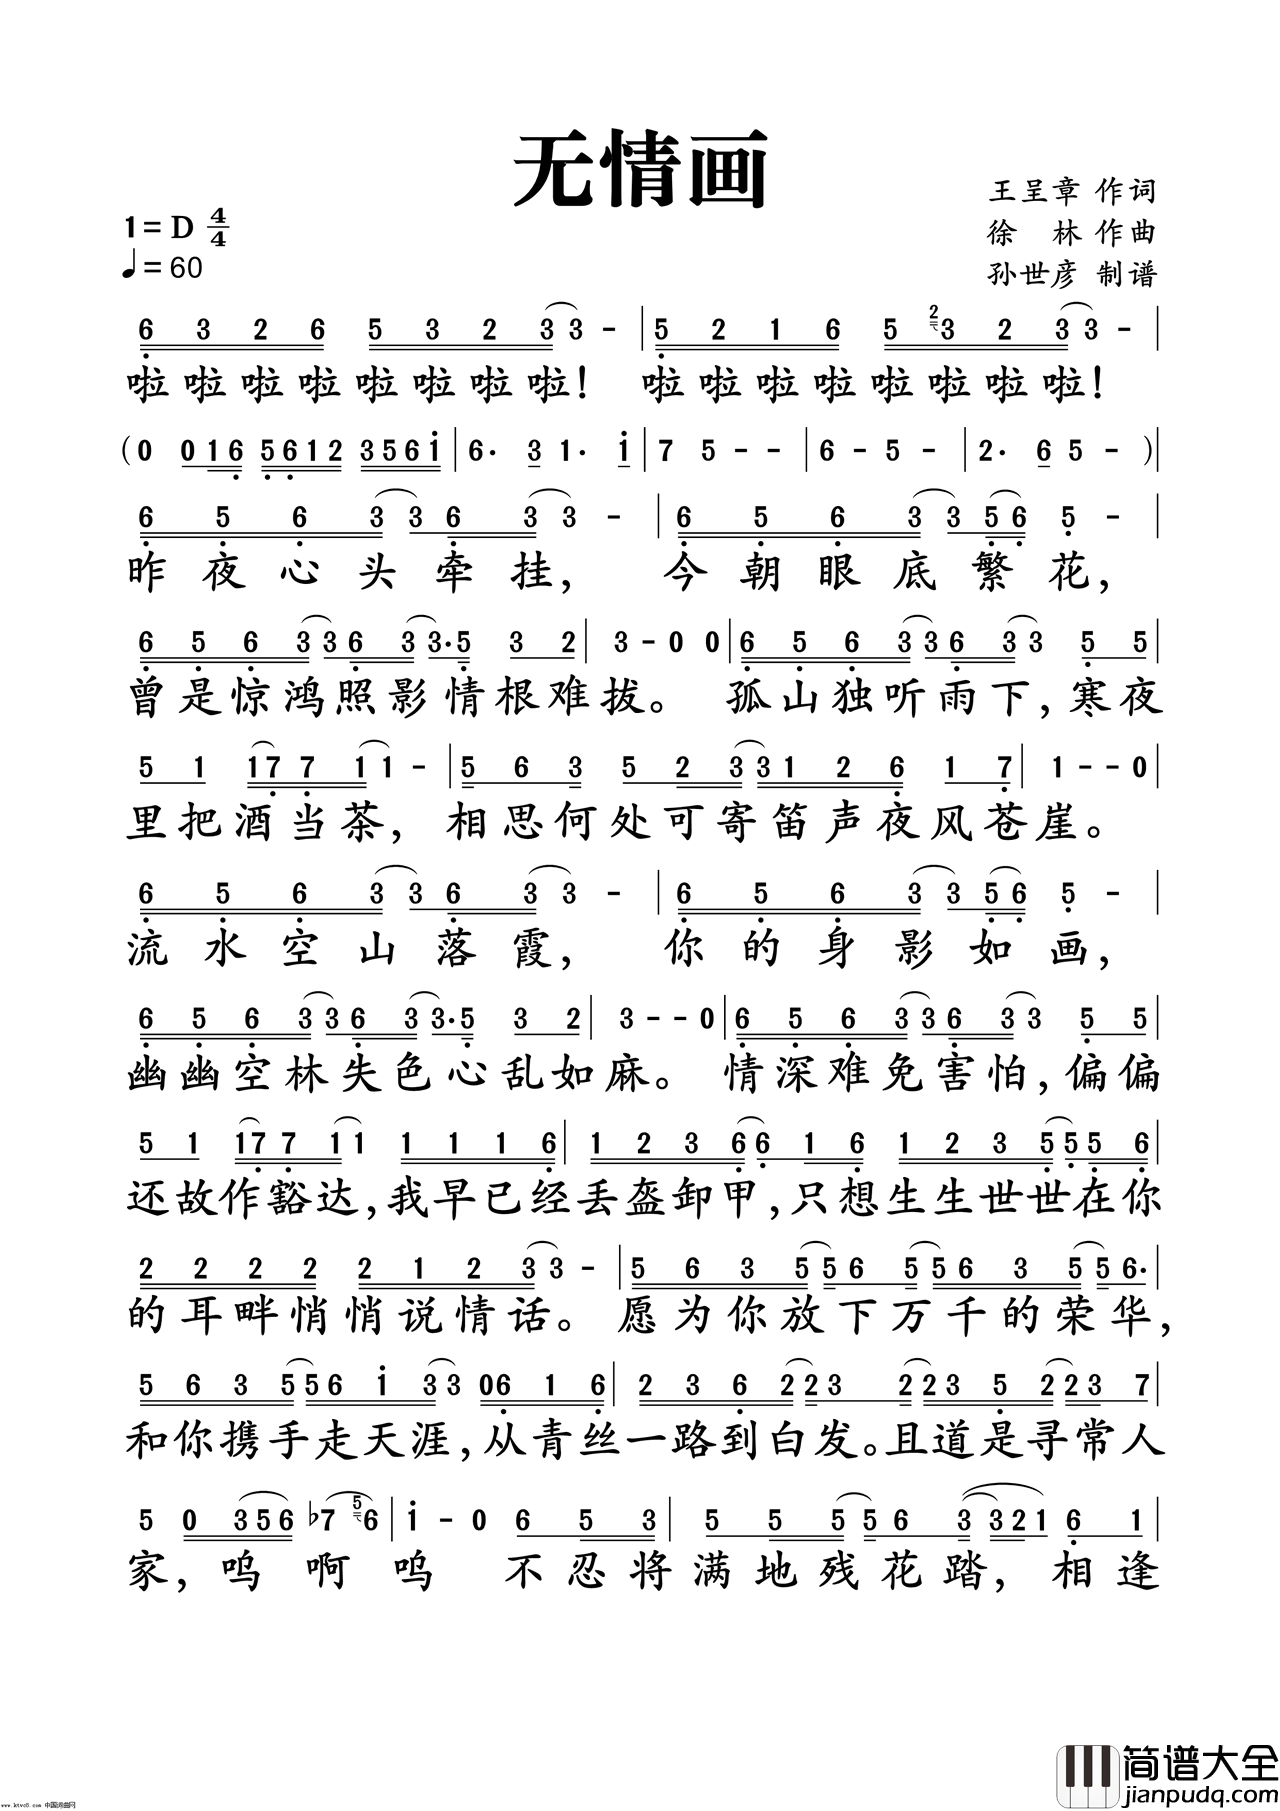 无情画
王呈章 作词
1=D 4/4
徐 林 作曲
♩=60
孙世彦 制谱
6 3 2 6 5 3 2 3 3 - | 5 2 1 6 5 2 3 2 3 3 - |
啦啦啦啦啦啦啦啦！ 啦啦啦啦啦啦啦啦！
( 0 0 1 6 5 6 1 2 3 5 6 i | 6· 3 1· i | 7 5 - - | 6 - 5 - | 2· 6 5 - ) |
6 5 6 3 3 6 3 3 - | 6 5 6 3 3 5 6 5 - |
昨夜心头牵挂， 今朝眼底繁花，
6 5 6 3 3 6 3 3· 5 3 2 | 3 - 0 0 | 6 5 6 3 3 6 3 3 5 5 |
曾是惊鸿照影情根难拔。 孤山独听雨下，寒夜
5 1 1 7 7 1 1 - | 5 6 3 5 2 3 3 1 2 6 1 7 | 1 - - 0 |
里把酒当茶，相思何处可寄笛声夜风苍崖。
6 5 6 3 3 6 3 3 - | 6 5 6 3 3 5 6 5 - |
流水空山落霞， 你的身影如画，
6 5 6 3 3 6 3 3· 5 3 2 | 3 - - 0 | 6 5 6 3 3 6 3 3 5 5 |
幽幽空林失色心乱如麻。 情深难免害怕，偏偏
5 1 1 7 7 1 1 1 1 1 6 | 1 2 3 6 6 1 6 1 2 3 5 5 5 6 |
还故作豁达，我早已经丢盔卸甲，只想生生世世在你
2 2 2 2 2 1 2 3 3 - | 5 6 3 5 5 6 5 5 6 3 5 5 6· |
的耳畔悄悄说情话。 愿为你放下万千的荣华，
5 6 3 5 5 6 i 3 3 0 6 1 6 | 2 3 6 2 2 3 2 2 3 5 2 2 3 7 |
和你携手走天涯，从青丝一路到白发。且道是寻常人
5 0 3 5 6 ♭7 5 6 | i - 0 6 5 3 | 5 5 5 5 6 3 3 2 1 6 1 |
家，呜 啊 呜 不忍将满地残花踏，相逢
简谱大全
jianpudq.com
www.ktvc8.com 中国词曲网